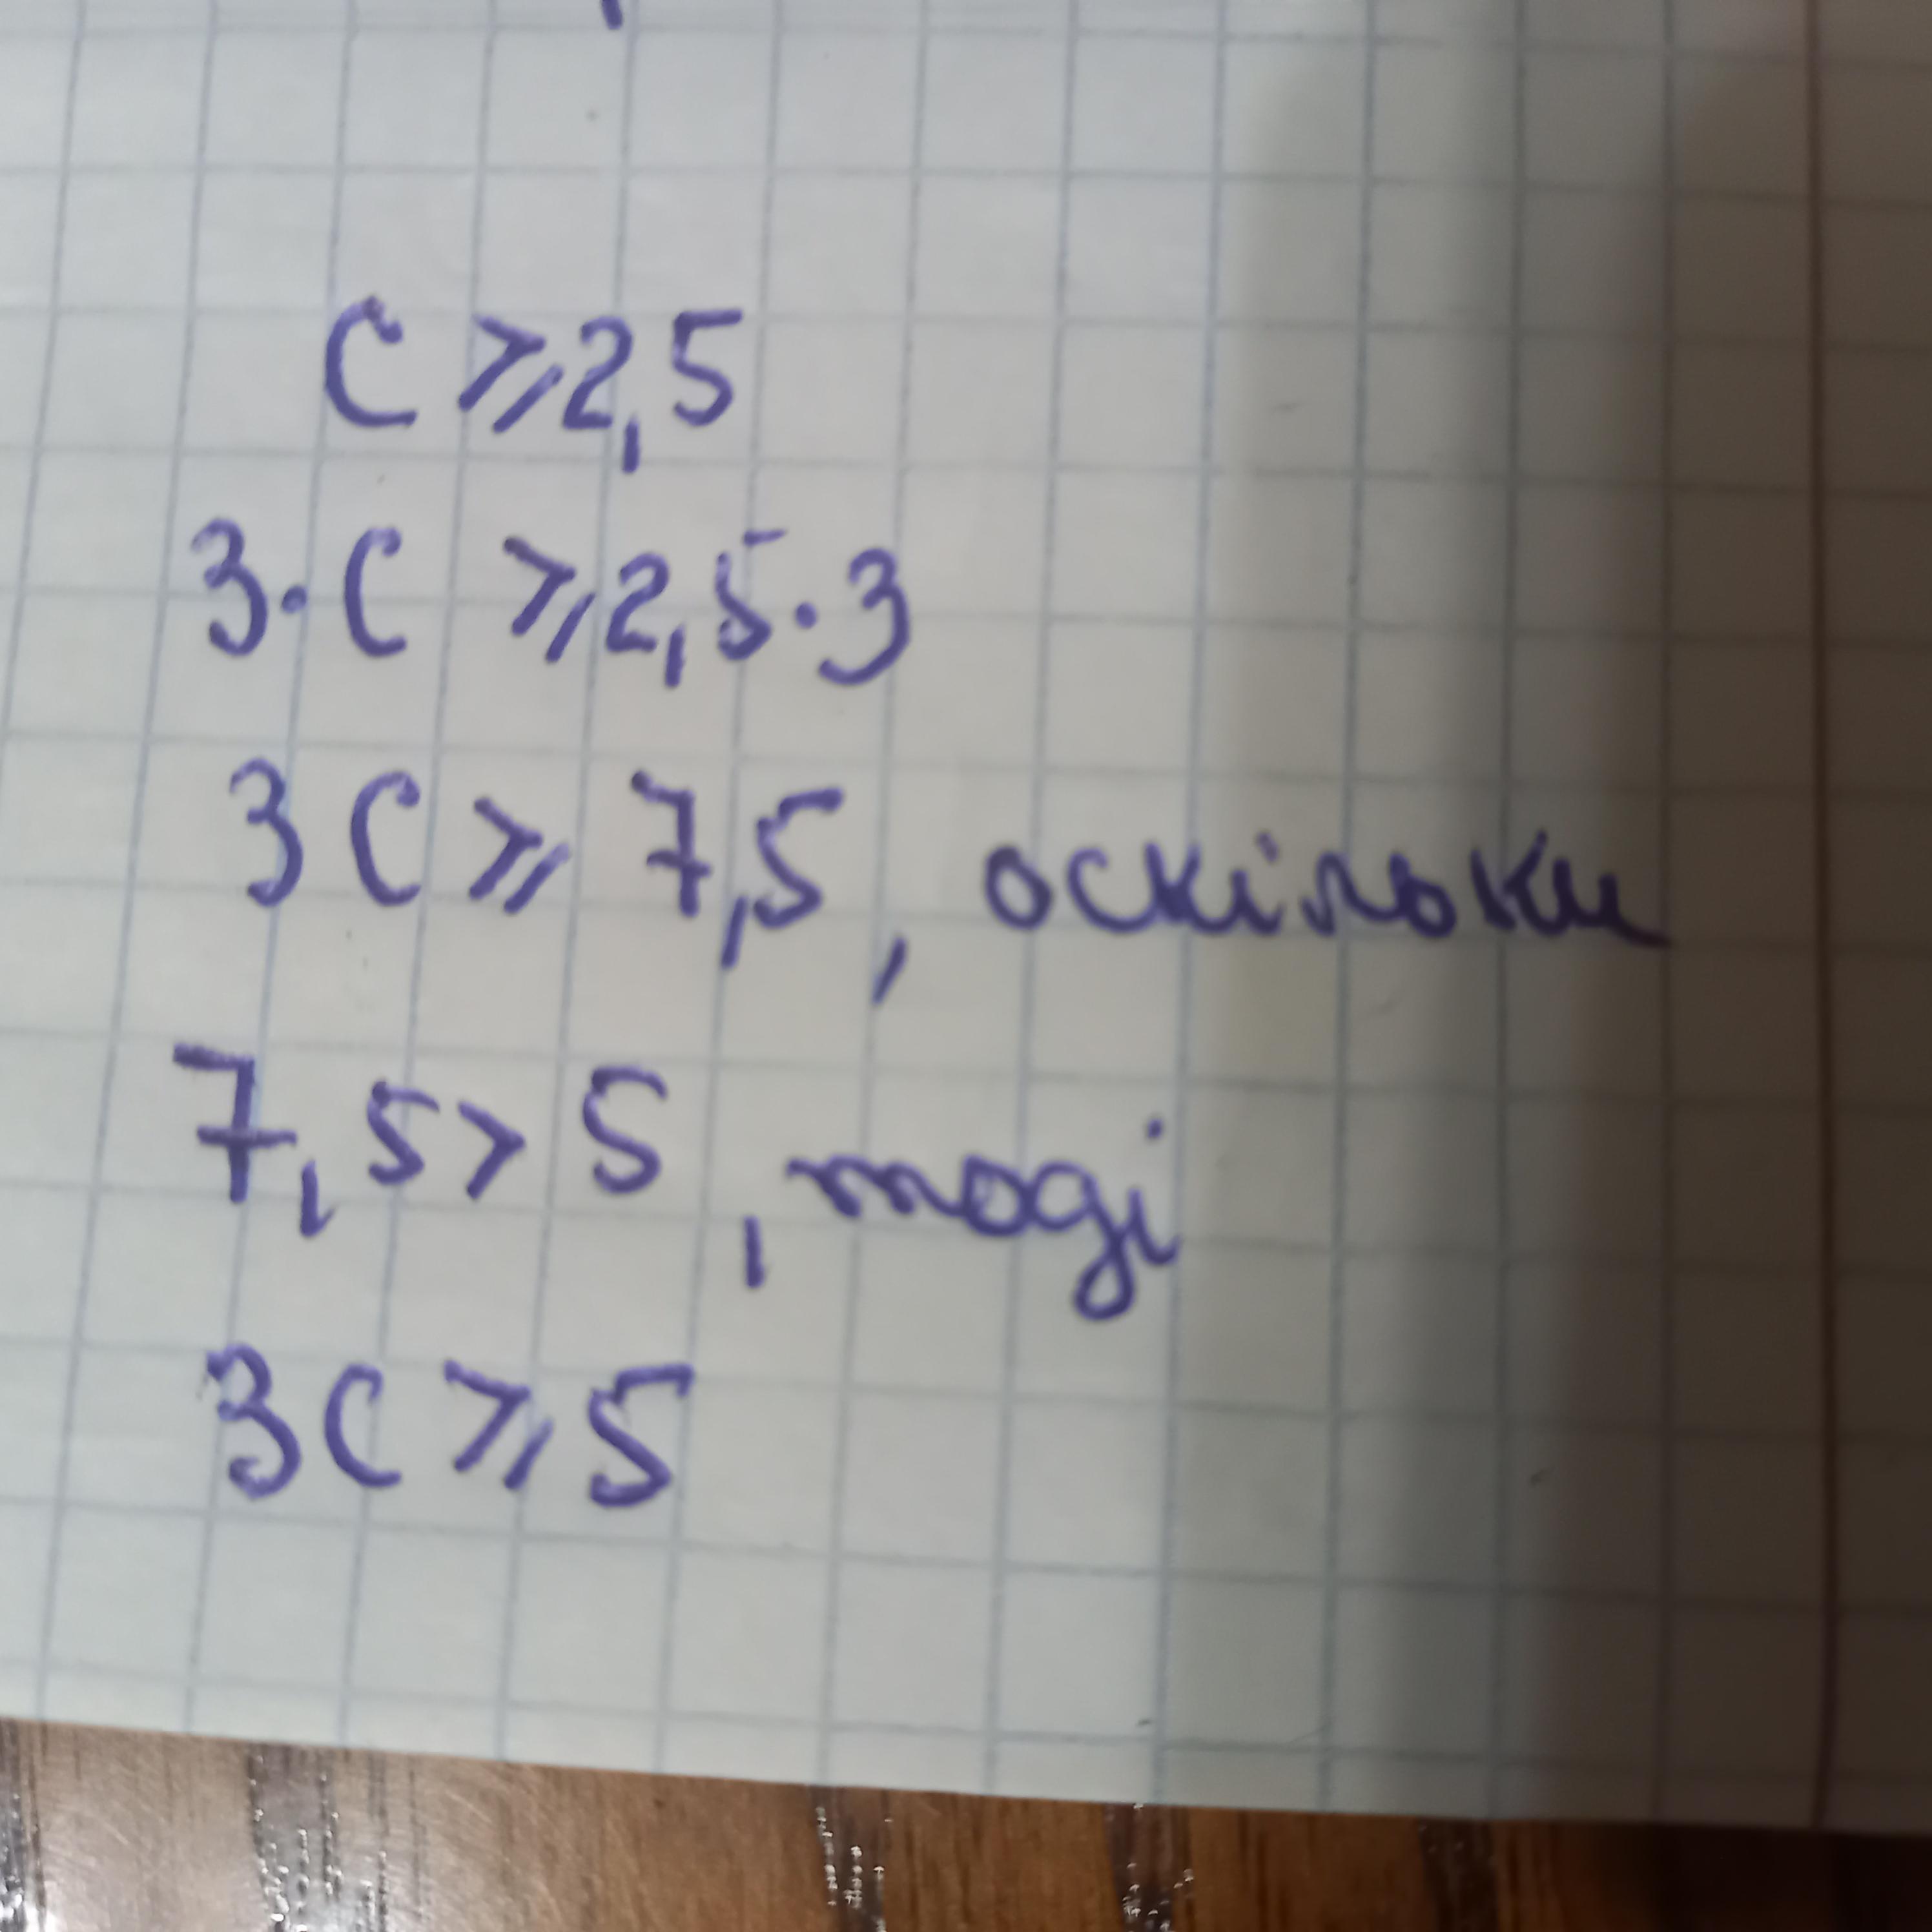 C ⩾ 2,5
3·C ⩾ 2,5·3
3C ⩾ 7,5, оскільки
7,5 > 5, тоді
3C ⩾ 5